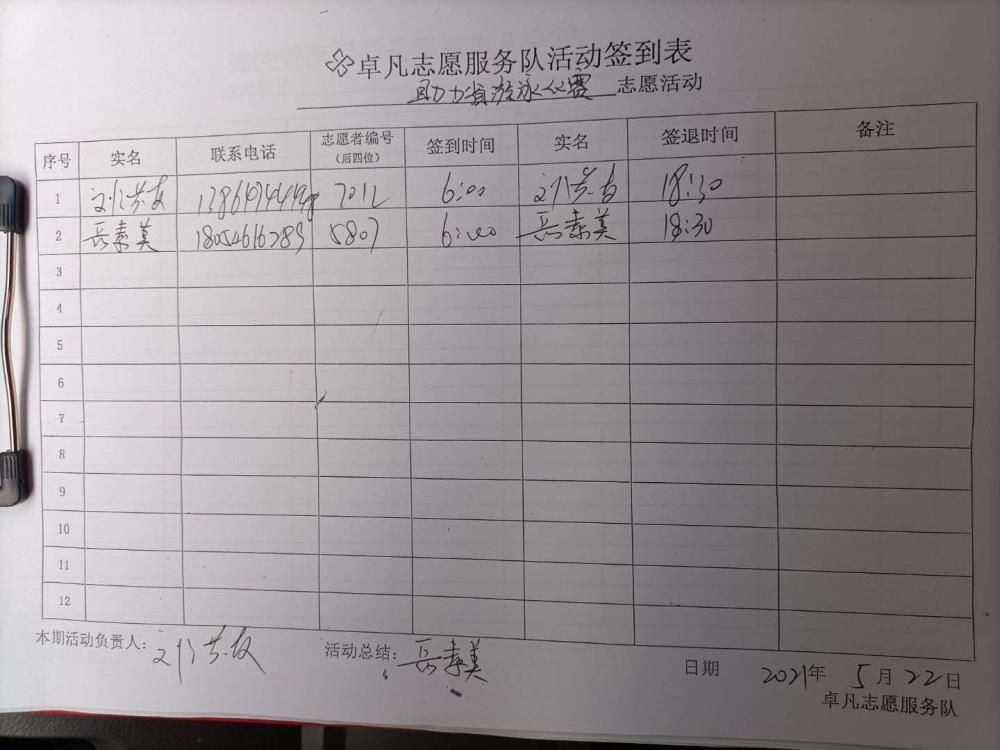 卓凡志愿服务队活动签到表
助力省游泳公开赛 志愿活动
序号 实名 联系电话 志愿者编号（后四位） 签到时间 实名 签退时间 备注
1 7012 6:00 18:30
2 岳素美 18054616789 5807 6:00 岳素美 18:30
3
4
5
6
7
8
9
10
11
12
本期活动负责人： 活动总结：岳素美 日期 2021年 5月 22日
卓凡志愿服务队